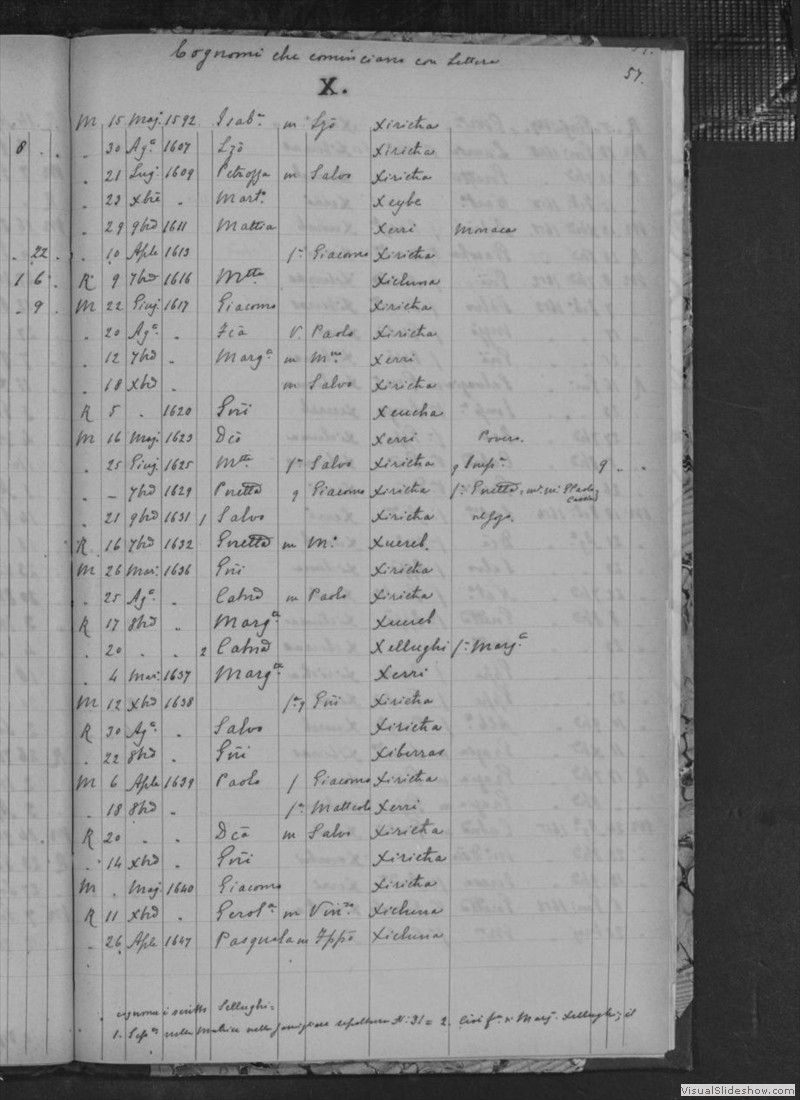 57.
Cognomi che cominciano con Lettera
X.
M 15 Magg. 1592 Isabª m Lzō Xiricha
8 . . . 30 Agº 1607 Lzō Xiricha
. 21 Lug. 1609 Petrossa m Salvo Xiricha
. 23 xbre . Martº Xeybe
. 29 9bre 1611 Mattea Xerri Monaca
. 22 . . 10 Aple 1613 fª Giacomo Xiricha
1 6 . R 9 7bre 1616 Mtta Xicluna
. 9 . M 22 Giug 1617 Giacomo Xiricha
. 20 Agº . Fcā V. Paolo Xiricha
. 12 7bre . Margª m Mno Xerri
. 18 Xbre . m Salvo Xiricha
R 5 . 1620 Gñi Xeucha
M 16 Magg 1623 Dcō Xerri Povero.
. 25 Giug 1625 Mtta fª Salvo Xiricha q Impª 9 . .
. – 7bre 1629 q Giacomo Xiricha
. 21 9bre 1631 1 Salvo Xiricha
R 16 7bre 1632 m Mº Xuereb
M 26 Mar. 1636 Gñi Xiricha
. 25 Agº . Catna m Paolo Xiricha
R 17 8bre . Margta Xuereb
. 20 . . 2 Catna Xellughi fª Margª
. 4 Mar. 1637 Margta Xerri
M 12 Xbre 1638 fª q Gñi Xiricha
R 30 Agº . Salvo Xiricha
. 22 8bre . Gñi Xiberras
M 6 Aple 1639 Paolo f Giacomo Xiricha
. 18 8bre . fª Matteolo Xerri
R 20 . . Dcā m Salvo Xiricha
. 14 Xbre . Gñi Xiricha
M . Magg 1640 Giacomo Xiricha
R 11 Xbre . Gerolª m Vinzo Xicluna
. 26 Aple 1647 Pasquala m Fppō Xicluna
cognome è scritto Sellughi.
1. Seplto nella Matrice nella sepoltura Nº 31 = 2. fª di Margª Xellughi; il
VisualSlideshow.com